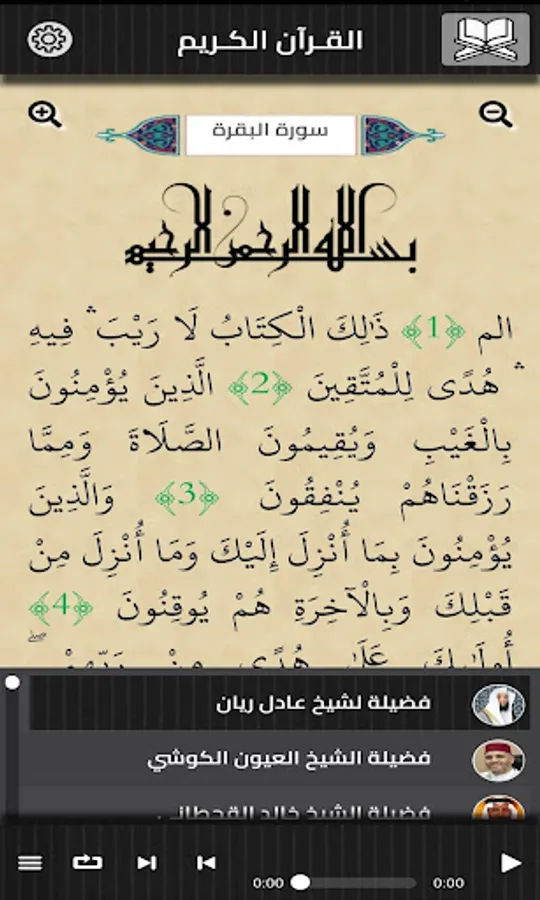 القرآن الكريم
سورة البقرة
بسم الله الرحمن الرحيم
الم ﴿1﴾ ذَٰلِكَ الْكِتَابُ لَا رَيْبَ ۛ فِيهِ
ۛ هُدًى لِلْمُتَّقِينَ ﴿2﴾ الَّذِينَ يُؤْمِنُونَ
بِالْغَيْبِ وَيُقِيمُونَ الصَّلَاةَ وَمِمَّا
رَزَقْنَاهُمْ يُنْفِقُونَ ﴿3﴾ وَالَّذِينَ
يُؤْمِنُونَ بِمَا أُنْزِلَ إِلَيْكَ وَمَا أُنْزِلَ مِنْ
قَبْلِكَ وَبِالْآخِرَةِ هُمْ يُوقِنُونَ ﴿4﴾
أُولَٰئِكَ عَلَىٰ هُدًى مِنْ رَبِّهِمْ ۖ
فضيلة لشيخ عادل ريان
فضيلة الشيخ العيون الكوشي
فضيلة الشيخ خالد القحطاني
0:00 0:00